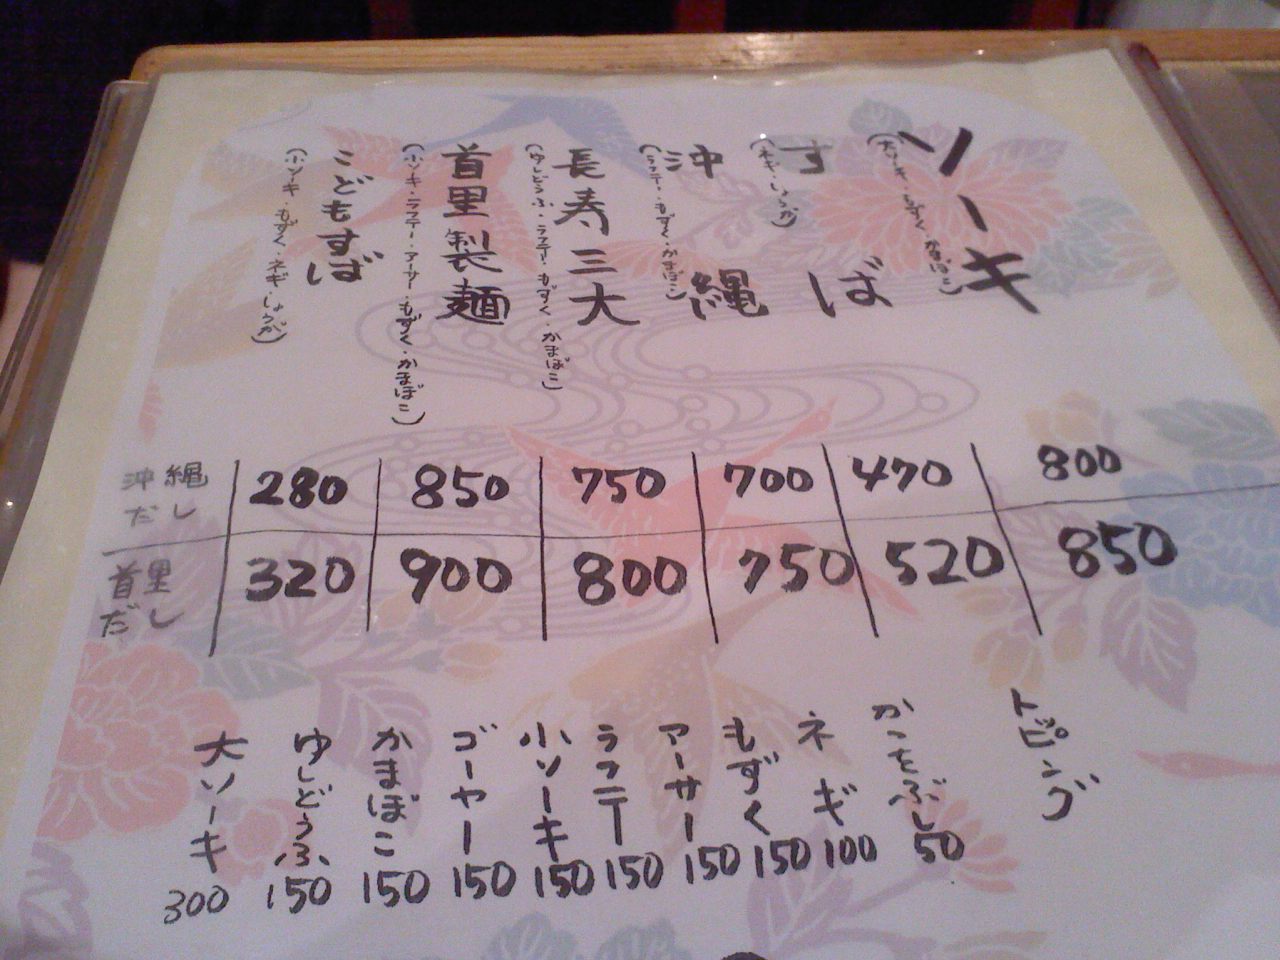 ソーキ
(大ソーキ・もずく・かまぼこ)
800
850
すば
(ネギ・しょうが)
470
520
沖縄
(ラフテー・もずく・かまぼこ)
700
750
長寿三大
(ゆしどうふ・ラフテー・もずく・かまぼこ)
750
800
首里製麺
(小ソーキ・ラフテー・アーサー・もずく・かまぼこ)
850
900
こどもすば
(小ソーキ・もずく・ネギ・しょうが)
280
320
沖縄だし
首里だし
トッピング
かつをぶし 50
ネギ 100
もずく 150
アーサー 150
ラフテー 150
小ソーキ 150
ゴーヤー 150
かまぼこ 150
ゆしどうふ 150
大ソーキ 300